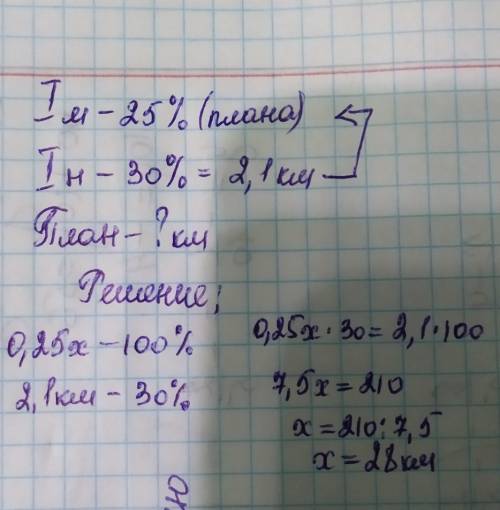 I м – 25% (плана)
I н – 30% = 2,1 км
План – ? км
Решение;
0,25х – 100%
2,1 км – 30%
0,25х · 30 = 2,1 · 100
7,5х = 210
х = 210 : 7,5
х = 28 км